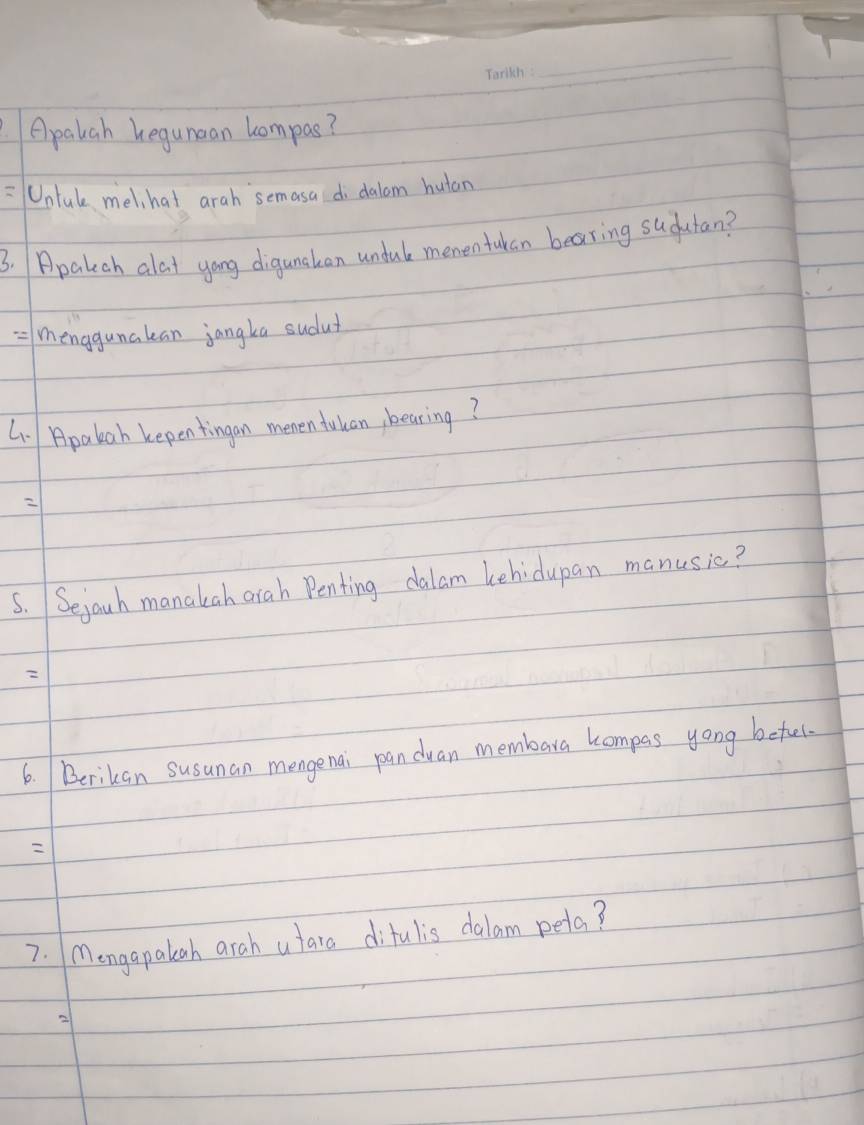 Tarikh :
2. Apakah kegunaan kompas?
= Untuk melihat arah semasa di dalam hutan
3. Apakah alat yang digunakan untuk menentukan bearing sudutan?
= menggunakan jangka sudut
4. Apakah kepentingan menentukan bearing?
=
5. Sejauh manakah arah Penting dalam kehidupan manusia?
=
6. Berikan susunan mengenai panduan membara kompas yang betul.
=
7. Mengapakah arah utara ditulis dalam peta?
=